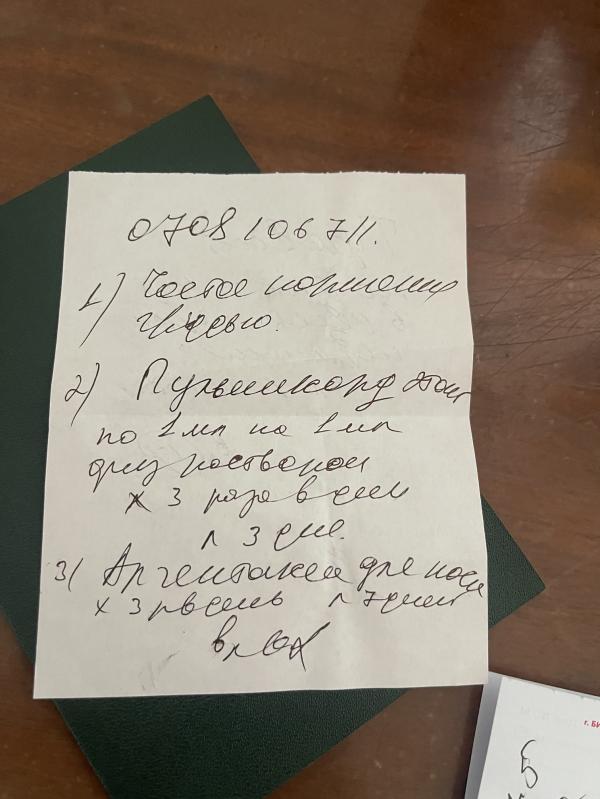 0708106711.
1) Частое кормление
грудью.
2) Пульмикорд
по 1 мл на 1 мл
физ раствором
х 3 раза в день
3 дня.
3) Аргентакея для носа
х 3 р в день 7 дней
г. БИ
Б